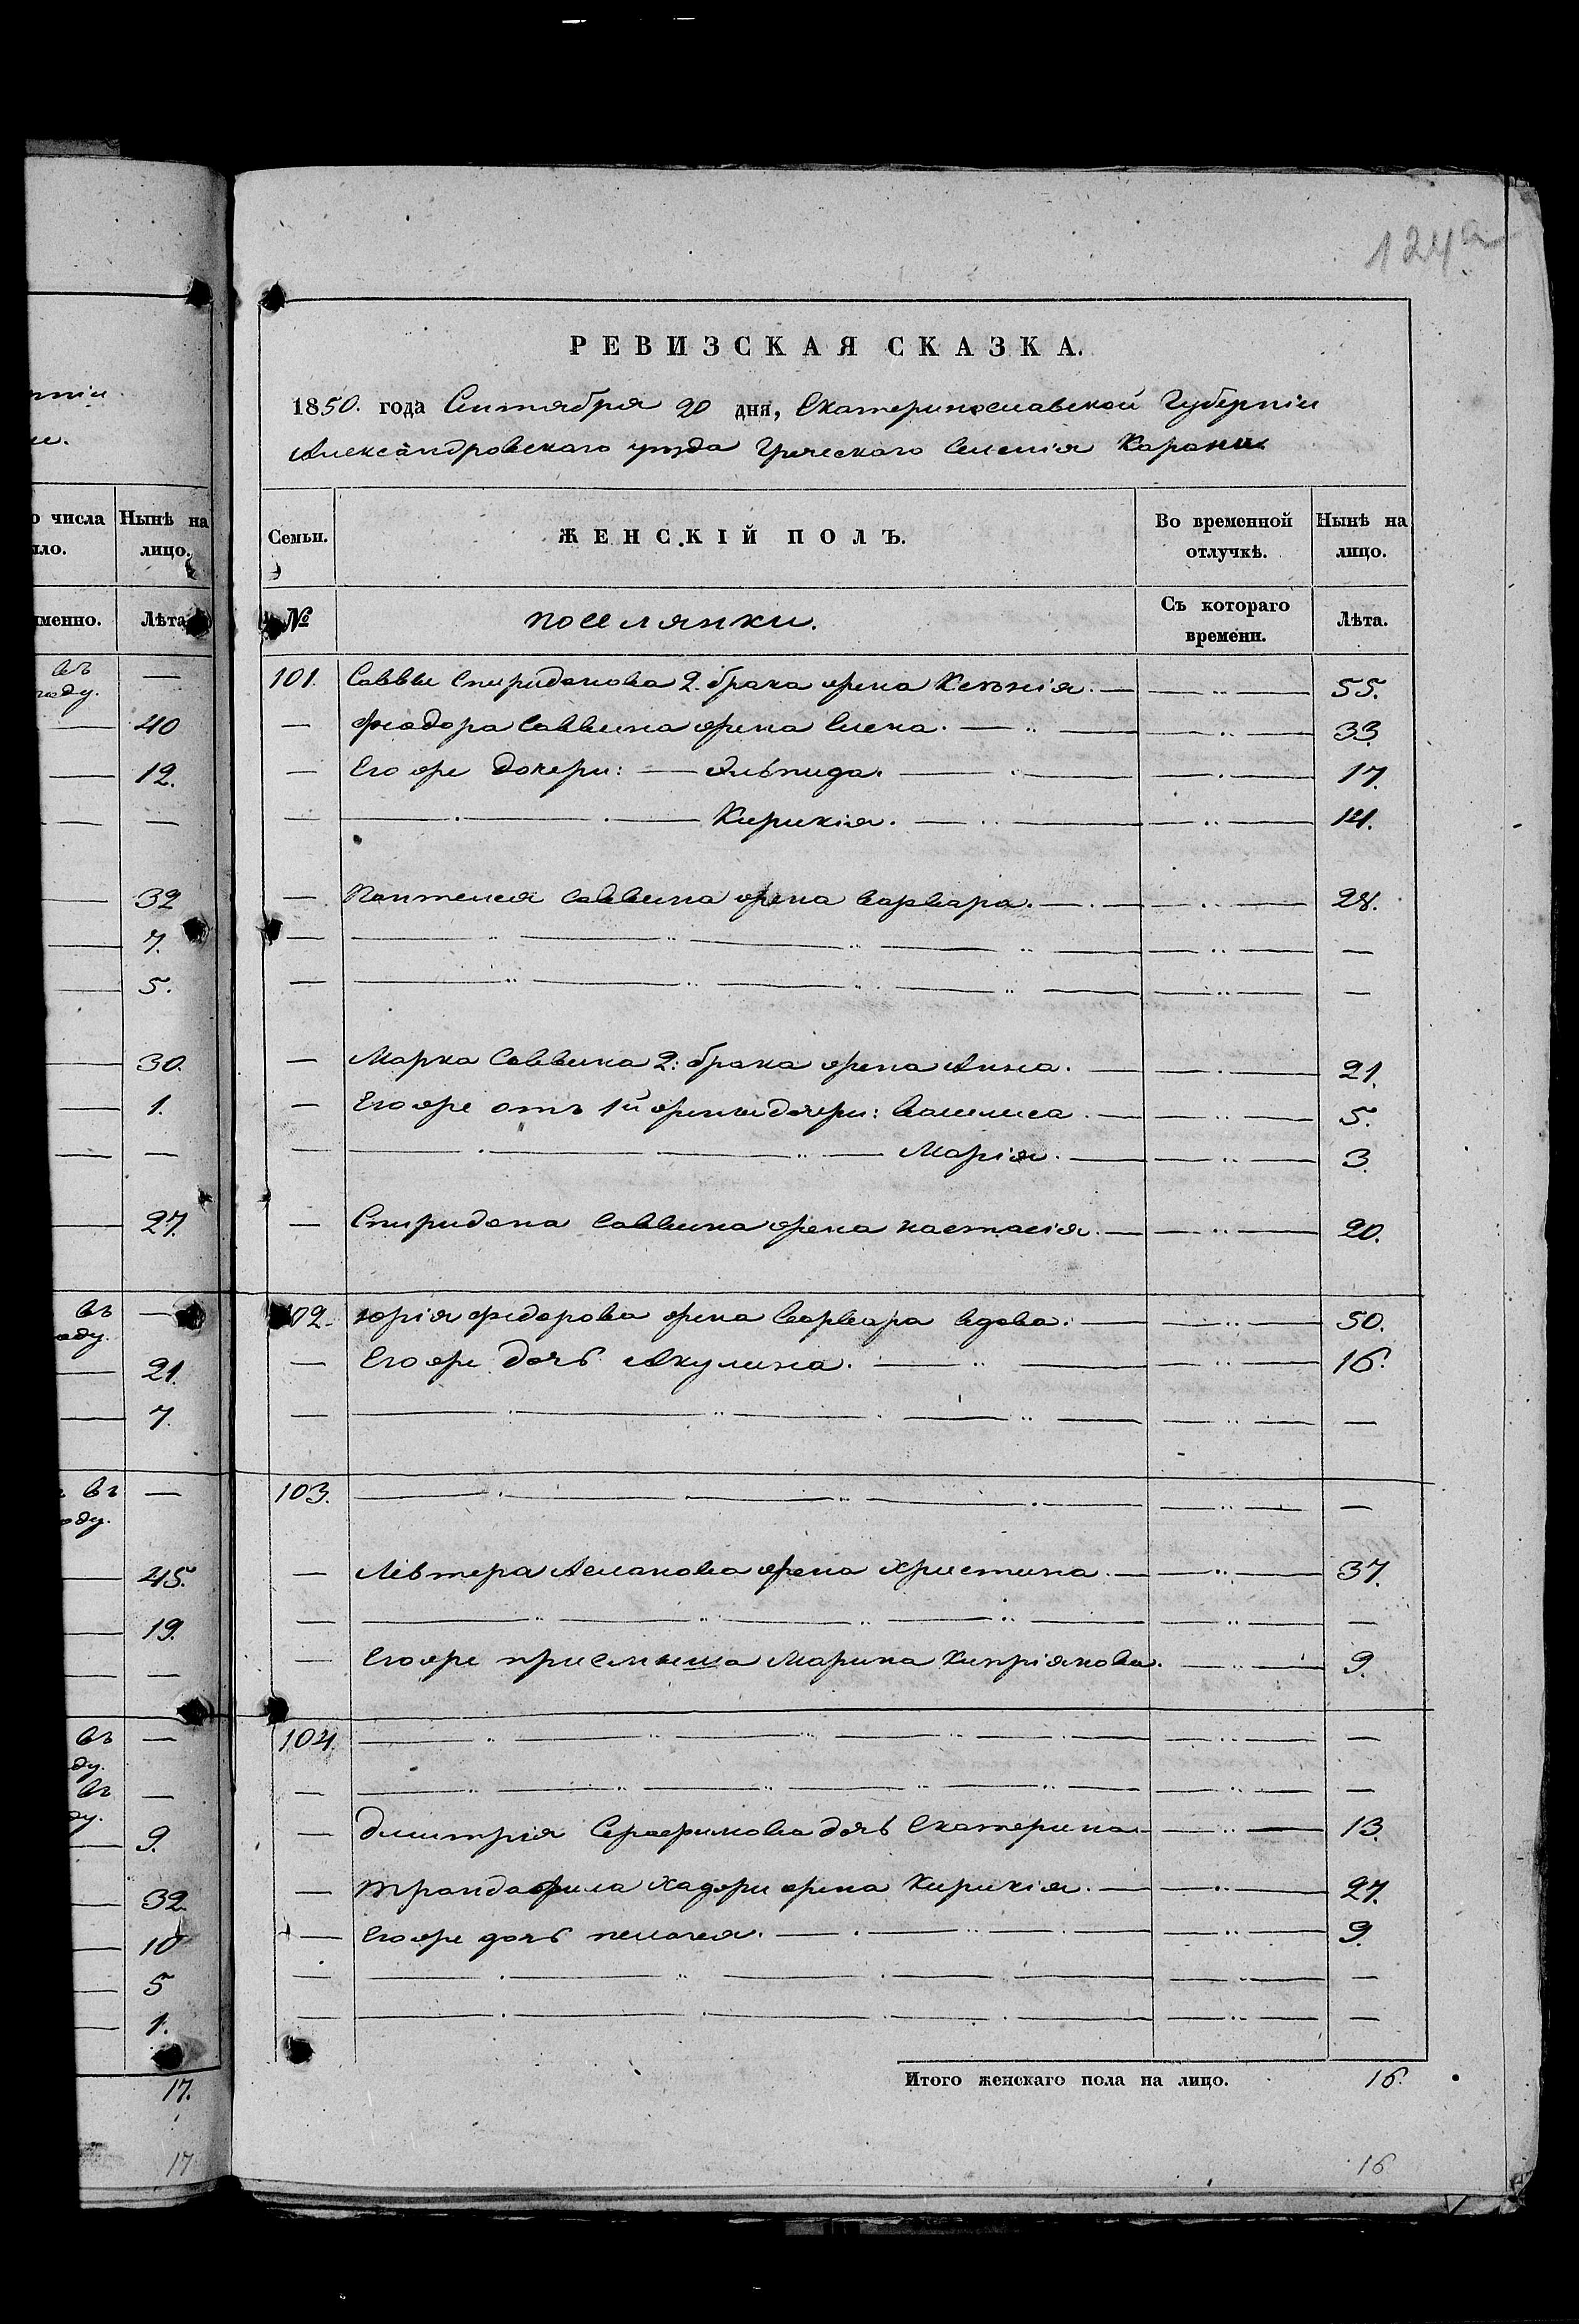 124а
РЕВИЗСКАЯ СКАЗКА.
1850. года Сентября 20 дня, Екатеринославской Губерніи
Александровскаго уѣзда Греческаго Селенія Карани.
Семьи. ЖЕНСКІЙ ПОЛЪ. Во временной отлучкѣ. Нынѣ на лицо.
№ поселянки. Съ котораго времени. Лѣта.
101. Саввы Спиридонова 2. брака жена Ксенія. 55.
Феодора Саввина жена Елена. 33.
Его же дочери: Эльпида. 17.
Кирикія. 14.
Пантелея Саввина жена Варвара. 28.
Марка Саввина 2: брака жена Анна. 21.
Его же отъ 1й жены дочери: Василиса 5.
Марія. 3.
Спиридона Саввина жена настасія. 20.
102. Юрія Федорова жена Варвара вдова. 50.
Его же дочь Акулина. 16.
103.
Левтера Асланова жена Христина. 37.
Его же приемыша Марина Кипріянова. 9.
104.
Дмитрія Серафимова дочь Екатерина 13.
Трандафила Хаджи жена Кирикія. 27.
Его же дочь пелагея. 9.
Итого женскаго пола на лицо. 16.
16
о числа Нынѣ на
ло. лицо.
именно. Лѣта
въ
году.
40
12.
32
7.
5.
30.
1.
27.
въ
оду.
21.
7.
въ
оду.
45.
19.
въ
ду.
въ
ду.
9.
32.
10
5
1.
17.
17